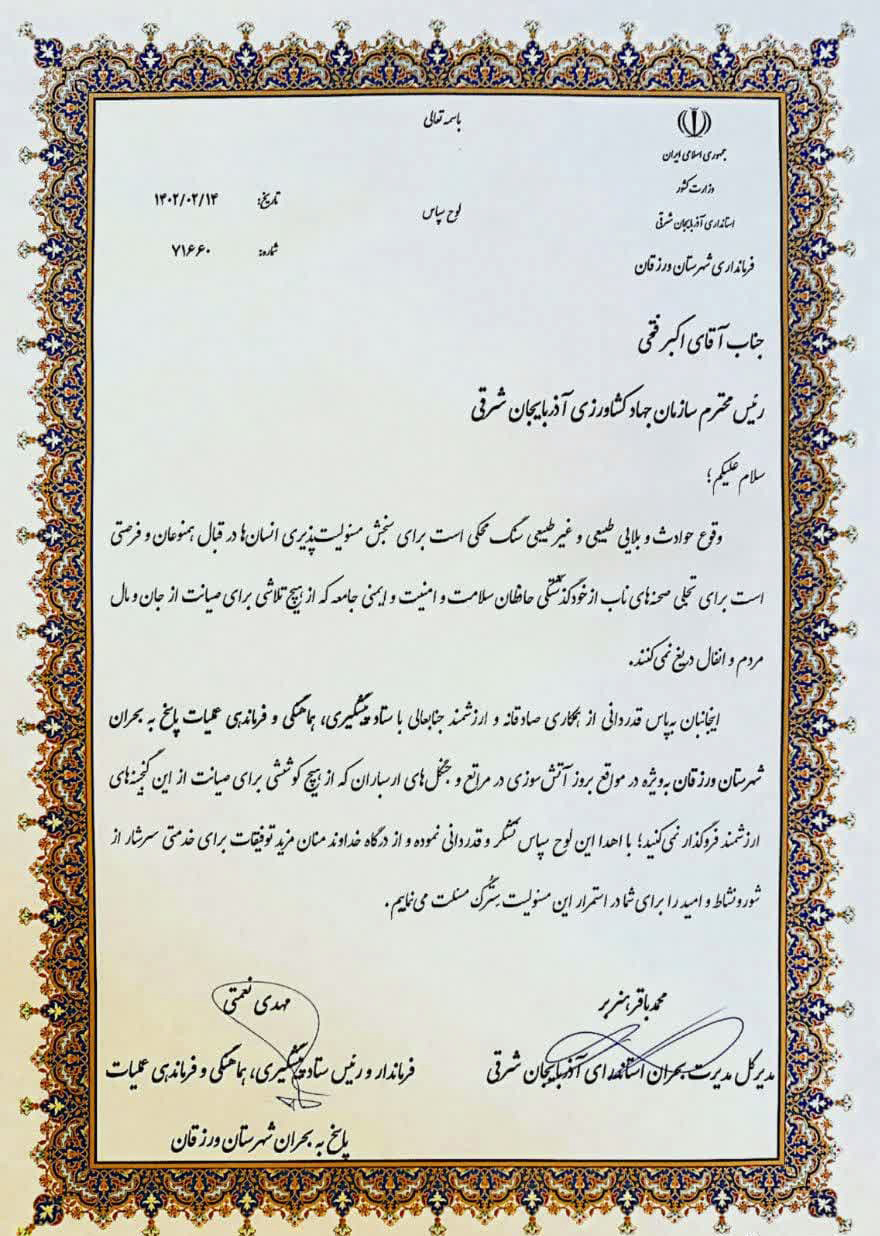 باسمه تعالی
جمهوری اسلامی ایران
وزارت کشور
استانداری آذربایجان شرقی
فرمانداری شهرستان ورزقان
لوح سپاس
تاریخ: ۱۴۰۲/۰۲/۱۴
شماره: ۷۱۶۶۰
جناب آقای اکبر فتحی
رئیس محترم سازمان جهاد کشاورزی آذربایجان شرقی
سلام علیکم؛
وقوع حوادث و بلایی طبیعی و غیرطبیعی سنگ محکی است برای سنجش مسئولیت‌پذیری انسان‌ها در قبال همنوعان و فرصتی
است برای تجلی صحنه‌های ناب از خودگذشتگی حافظان سلامت و امنیت و ایمنی جامعه که از هیچ تلاشی برای صیانت از جان و مال
مردم و انفال دریغ نمی‌کنند.
اینجانبان به‌پاس قدردانی از همکاری صادقانه و ارزشمند جنابعالی با ستاد پیشگیری، هماهنگی و فرماندهی عملیات پاسخ به بحران
شهرستان ورزقان به‌ویژه در مواقع بروز آتش‌سوزی در مراتع و جنگل‌های ارسباران که از هیچ کوششی برای صیانت از این گنجینه‌های
ارزشمند فروگذار نمی‌کنید؛ با اهدا این لوح سپاس تشکر و قدردانی نموده و از درگاه خداوند منان مزید توفیقات برای خدمتی سرشار از
شور و نشاط و امید را برای شما در استمرار این مسئولیت سترگ مسئلت می‌نمایم.
محمدباقر هنربر
مدیرکل مدیریت بحران استانداری آذربایجان شرقی
مهدی نعمتی
فرماندار و رئیس ستاد پیشگیری، هماهنگی و فرماندهی عملیات
پاسخ به بحران شهرستان ورزقان